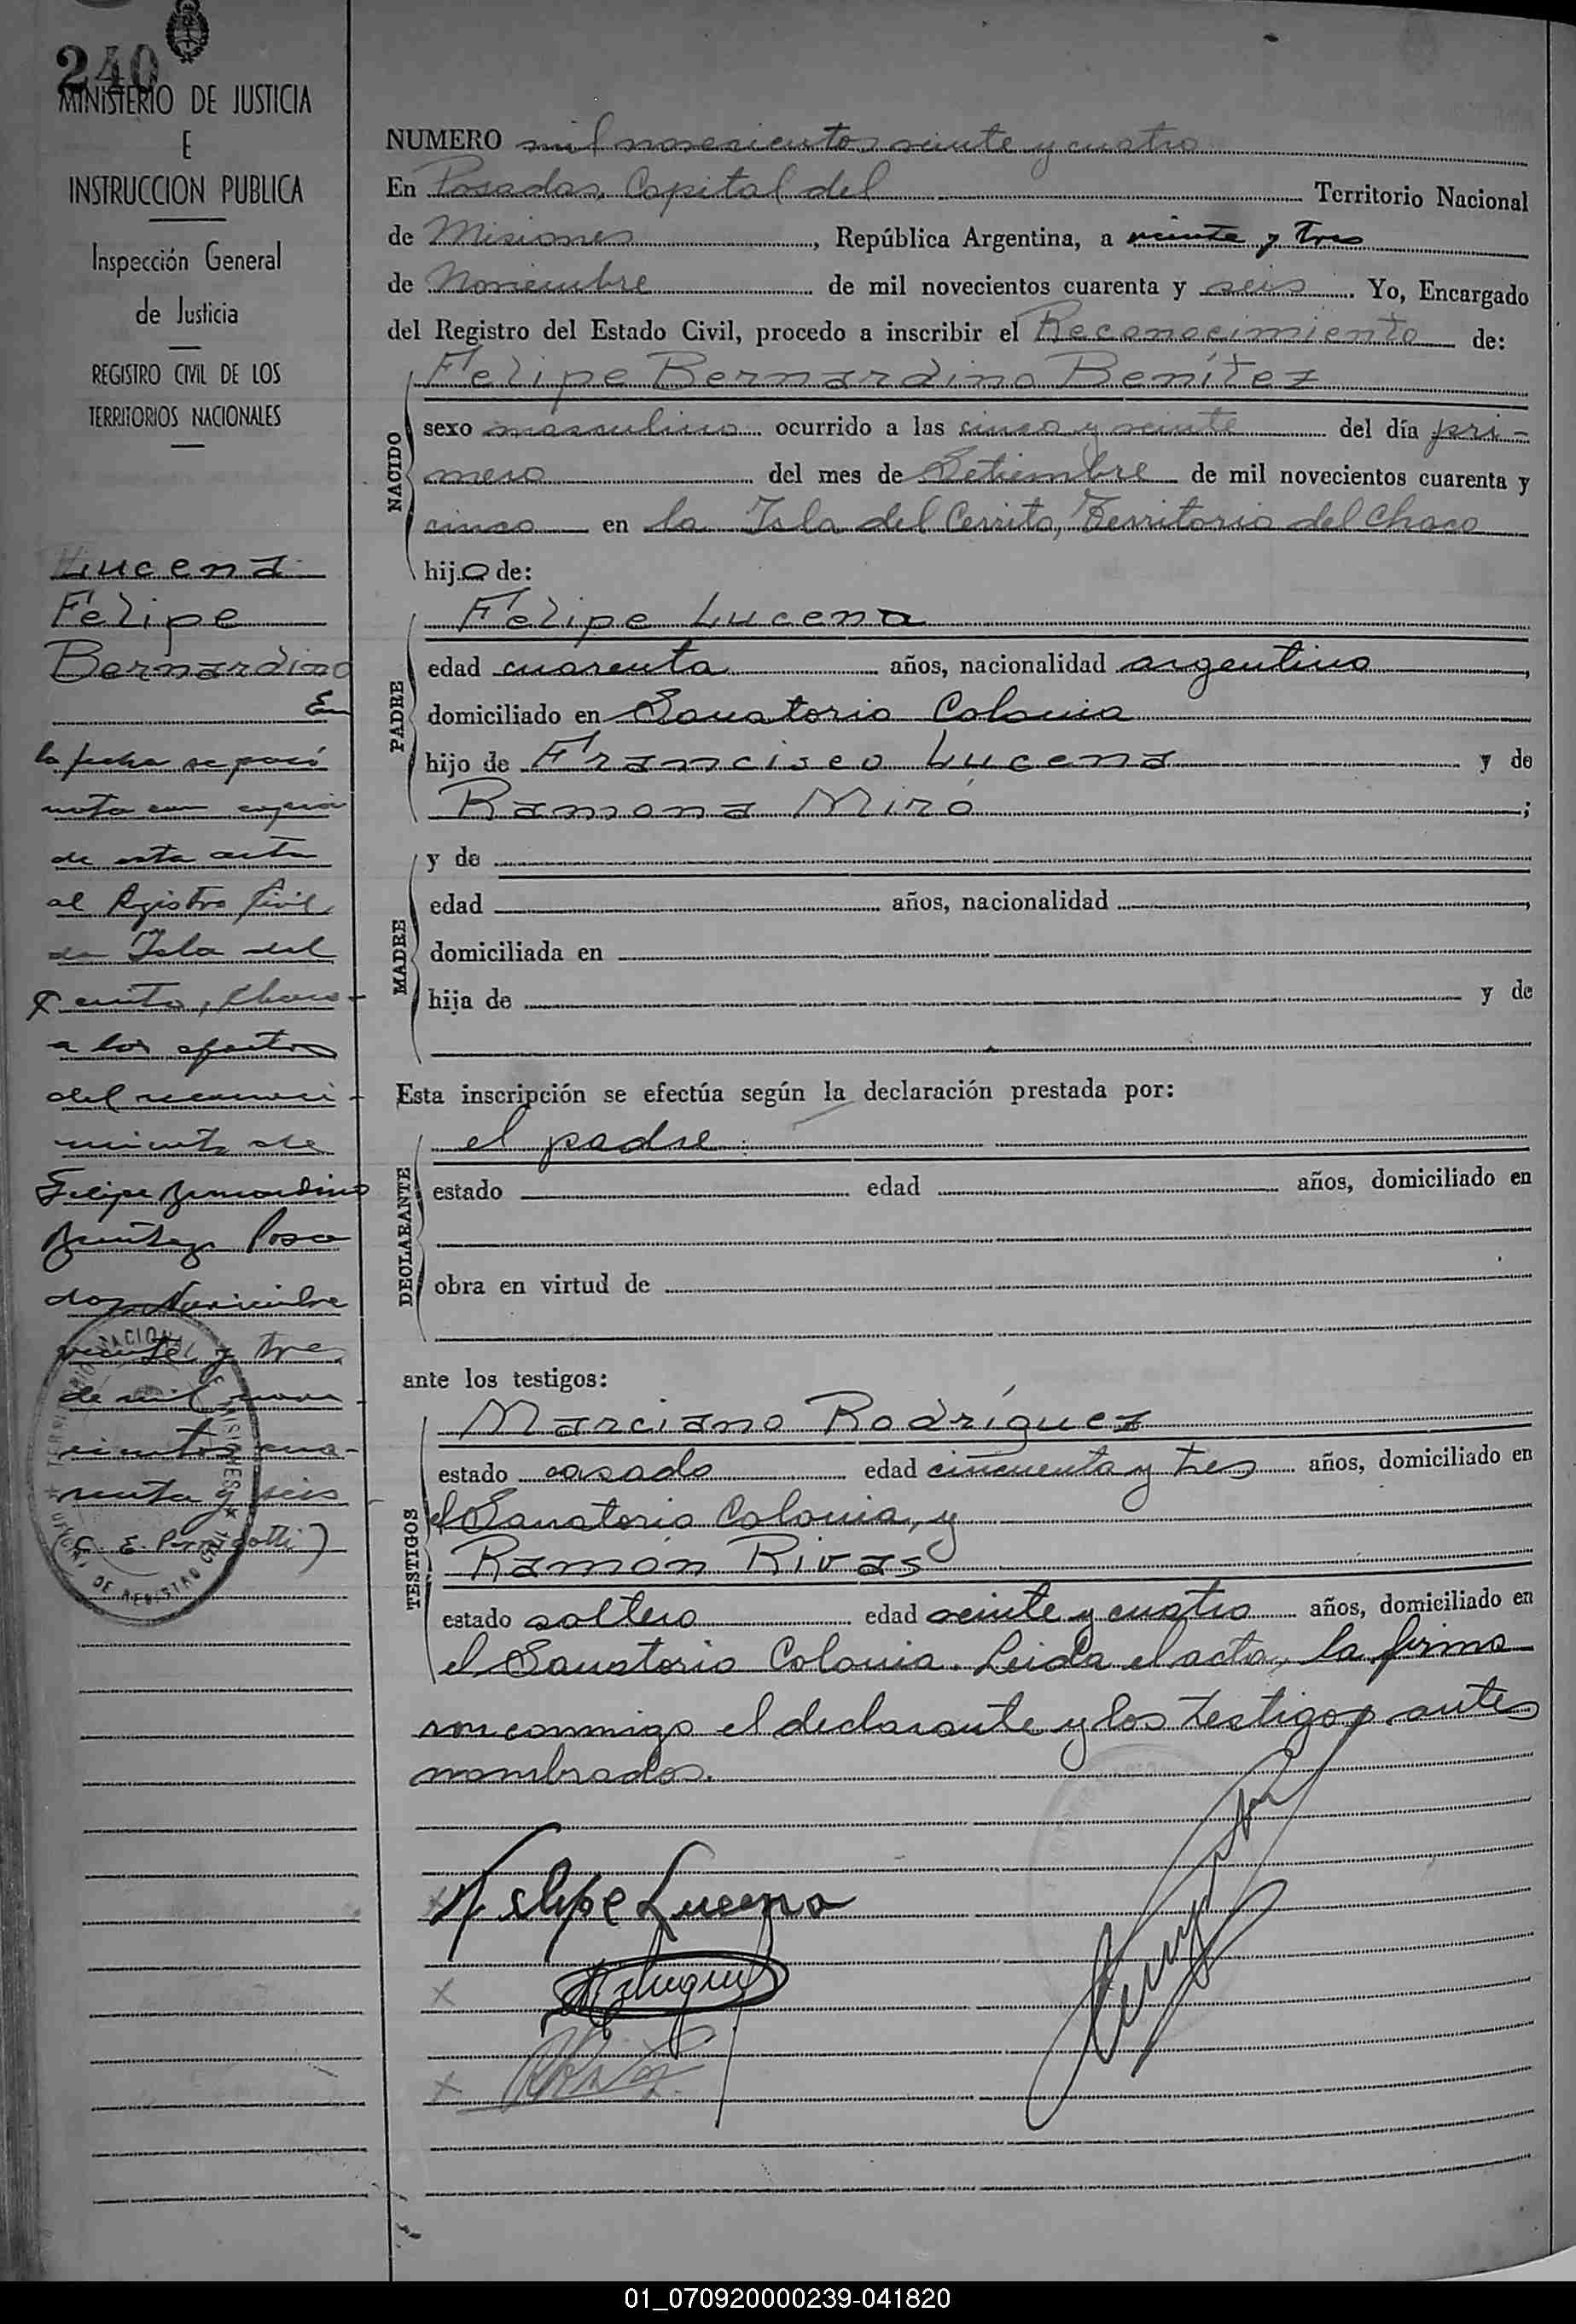 240
MINISTERIO DE JUSTICIA
E
INSTRUCCION PUBLICA
Inspección General
de Justicia
REGISTRO CIVIL DE LOS
TERRITORIOS NACIONALES
Lucena
Felipe
Bernardino
En
la fecha se pasó
nota con copia
de esta acta
al Registro Civil
de Isla del
Cerrito, Chaco
a los efectos
del reconoci-
miento de
Felipe Bernardino
Benitez. Posa
das, Noviembre
veinte y tres
de mil nove
cientos cua-
renta y seis
NUMERO mil novecientos veinte y cuatro
En Posadas, Capital del Territorio Nacional
de Misiones, República Argentina, a veinte y tres
de Noviembre de mil novecientos cuarenta y seis. Yo, Encargado
del Registro del Estado Civil, procedo a inscribir el Reconocimiento de:
NACIDO
Felipe Bernardino Benítez
sexo masculino ocurrido a las cinco y veinte del día pri-
mero del mes de Setiembre de mil novecientos cuarenta y
cinco en la Isla del Cerrito, Territorio del Chaco
hijo de:
PADRE
Felipe Lucena
edad cuarenta años, nacionalidad argentino,
domiciliado en Sanatorio Colonia
hijo de Francisco Lucena y de
Ramona Miró;
MADRE
y de
edad años, nacionalidad,
domiciliada en
hija de y de
Esta inscripción se efectúa según la declaración prestada por:
DECLARANTE
el padre
estado edad años, domiciliado en
obra en virtud de
ante los testigos:
TESTIGOS
Marciano Rodríguez
estado casado edad cincuenta y tres años, domiciliado en
el Sanatorio Colonia, y
Ramón Rivas
estado soltero edad veinte y cuatro años, domiciliado en
el Sanatorio Colonia. Leida el acta, la firma
ron conmigo el declarante y los testigos antes
nombrados.
Felipe Lucena
01_070920000239-041820